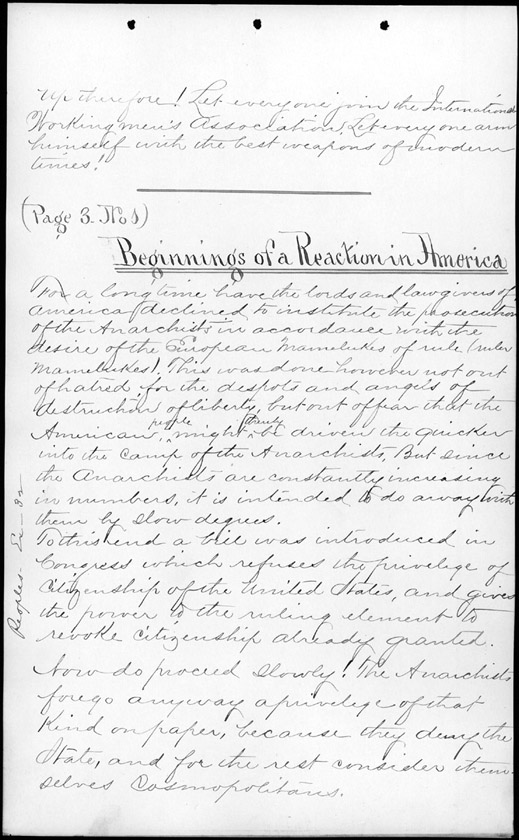 Up therefore! Let everyone join the International
Workingmen's Association, Let every one arm
himself with the best weapons of modern
times!
(Page 3. No 1)
Beginnings of a Reaction in America
For a long time have the lords and lawgivers of
America declined to institute the prosecution
of the Anarchists in accordance with the
desire of the European Mamelukes of rule (ruler
Mamelukes). This was done however not out
of hatred for the despots and angels of
destruction of liberty, but out of fear that the
American people might thereby be driven the quicker
into the camp of the Anarchists, But since
the Anarchists are constantly increasing
in numbers, it is intended to do away with
them by slow degrees.
To this end a bill was introduced in
Congress which refuses the privilege of
Citizenship of the United States, and gives
the power to the ruling element to
revoke citizenship already granted.
Now do proceed slowly! The Anarchists
forego anyway a privilege of that
Kind on paper, because they deny the
State, and for the rest consider them-
selves Cosmopolitans.
Peoples. Ex-82